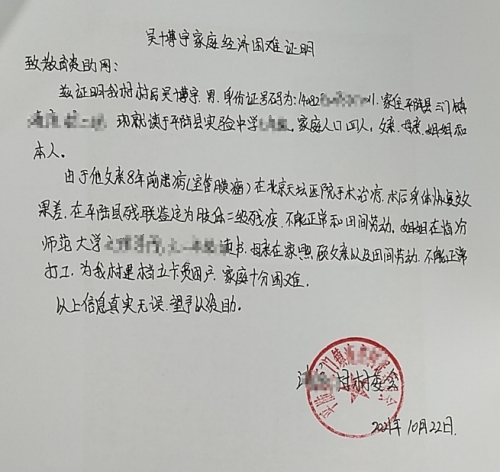 吴博宇家庭经济困难证明
致散离贵助网：
兹证明我村村民吴博宇，男，身份证号码为：1408 1，家住平陆县三门镇
现就读于平陆县实验中学 家庭人口四人，父亲、母亲、姐姐和
本人。
由于他父亲8年前患病(室管膜瘤)在北京天坛医院手术治疗，术后身体恢复效
果差，在平陆县残联鉴定为肢体二级残疾，不能正常和田间劳动，姐姐在临汾
师范大学 读书，母亲在家照顾父亲以及田间劳动，不能正常
打工，为我村建档立卡贫困户，家庭十分困难。
以上信息真实无误，望予以资助。
村委会
2021年10月22日